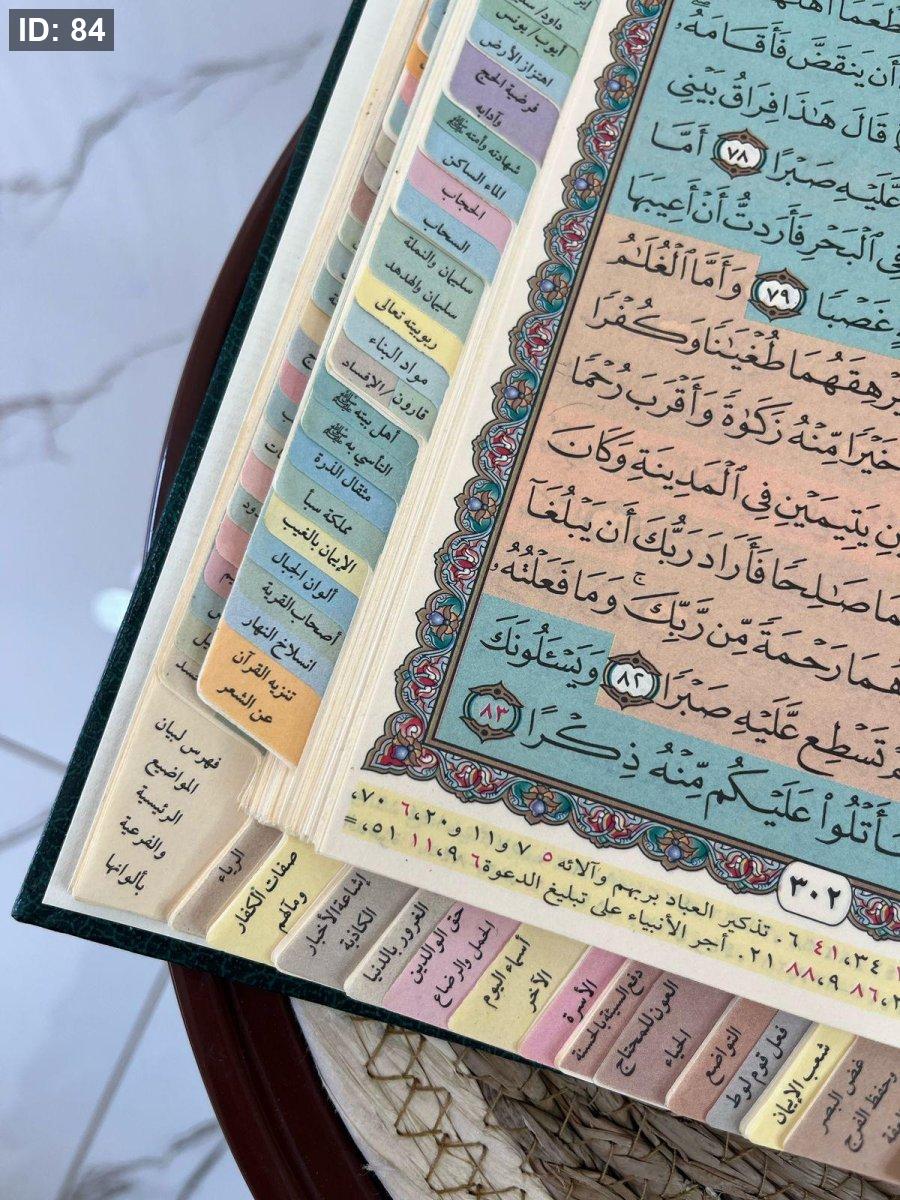 ID: 84
أَن يَنقَضَّ فَأَقَامَهُۥ
قَالَ هَٰذَا فِرَاقُ بَيْنِي
عَلَّيْهِ صَبْرًا ٧٨ أَمَّا
فِي ٱلْبَحْرِ فَأَرَدتُّ أَنْ أَعِيبَهَا
غَصْبًا ٧٩ وَأَمَّا ٱلْغُلَٰمُ
يُرْهِقَهُمَا طُغْيَٰنًا وَكُفْرًا
خَيْرًا مِّنْهُ زَكَوٰةً وَأَقْرَبَ رُحْمًا
يَتِيمَيْنِ فِي ٱلْمَدِينَةِ وَكَانَ
صَٰلِحًا فَأَرَادَ رَبُّكَ أَن يَبْلُغَآ
رَحْمَةً مِّن رَّبِّكَ ۚ وَمَا فَعَلْتُهُۥ
تَسْطِع عَّلَيْهِ صَبْرًا ٨٢ وَيَسْـَٔلُونَكَ
سَأَتْلُوا۟ عَلَيْكُم مِّنْهُ ذِكْرًا ٨٣
٣٠٢
٦. تذكير العباد بربهم وآلائه ٥ ٧ و١١ و٢٠، ٦ ٧٠،
٢١. أجر الأنبياء على تبليغ الدعوة ٦ ٩، ١١ ٥١، =
داود/
أيوب/يونس
اهتزاز الأرض
فرضية الحج
وآدابه
شهادته وأمته ﷺ
الماء الساكن
الحجاب
السحاب
سليمان والنملة
سليمان والهدهد
ربوبيته تعالى
مواد البناء
قارون/الإفساد
أهل بيته ﷺ
التأسي به ﷺ
مثقال الذرة
مملكة سبأ
الإيمان بالغيب
ألوان الجبال
أصحاب القرية
انسلاخ النهار
تنزيه القرآن
عن الشعر
فهرس لبيان
المواضيع
الرئيسية
والفرعية
بألوانها
الرياء
صفات الكفار
ومآلهم
إشاعة الأخبار
الكاذبة
الغرور بالدنيا
حق الوالدين
الحمل والرضاع
أسماء اليوم
الآخر
الأسرة
دفع السيئة بالحسنة
العون للمحتاج
الحياء
التواضع
فعل قوم لوط
شعب الإيمان
غض البصر
وحفظ الفرج